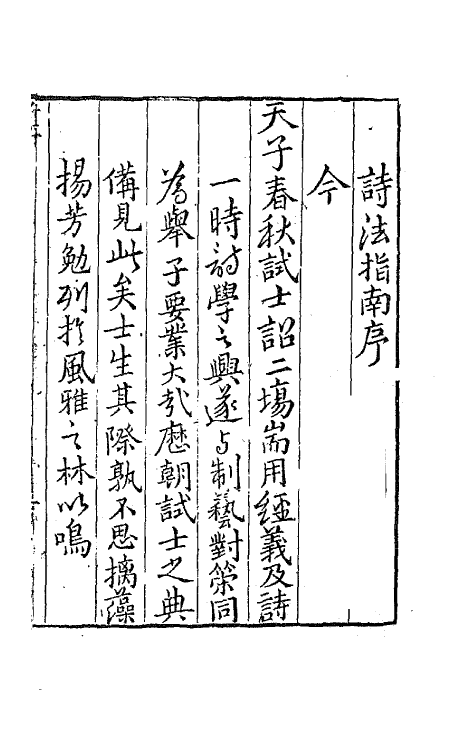 詩法指南序
今
天子春秋試士詔二場耑用經義及詩
一時詩學之興遂与制藝對策同
為舉子要業大㢤歷朝試士之典
備見此矣士生其際孰不思摛藻
揚芳勉列扵風雅之林以鳴